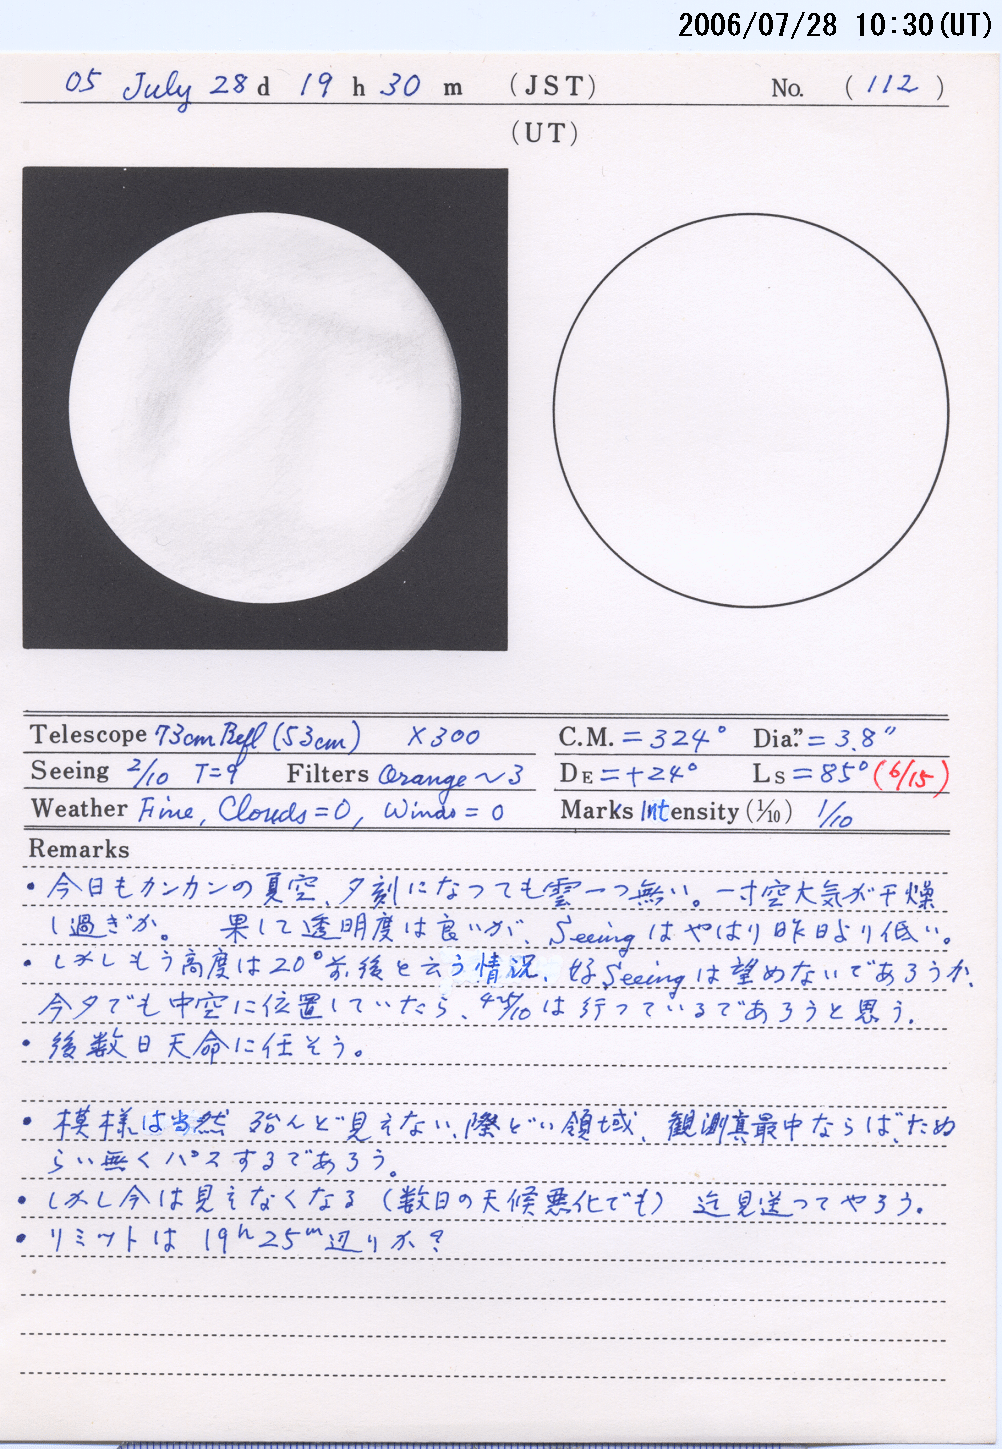 2006/07/28 10:30(UT)
05 July 28 d 19 h 30 m (JST) No. (112)
(UT)
Telescope 73cm Refl (53cm) ×300
C.M. = 324° Dia." = 3.8"
Seeing 2/10 T=9 Filters Orange ~ 3
DE = +24° LS = 85° (6/15)
Weather Fine, Clouds = 0, Winds = 0
Marks Intensity (1/10) 1/10
Remarks
・今日もカンカンの夏空、夕刻になっても雲一つ無い。一寸空大気が干燥
し過ぎか。 果して透明度は良いが、Seeingはやはり昨日より低い。
・しかしもう高度は20°前後と云う情況、好Seeingは望めないであろうか、
今夕でも中空に位置していたら、/10は行っているであろうと思う。
・後数日天命に任そう。
・模様は当然 殆んど見えない、際どい領域、観測真最中ならば、ため
らい無くパスするであろう。
・しかし今は見えなくなる(数日の天候悪化でも) 迄見送ってやろう。
・リミットは 19h 25m辺りか?